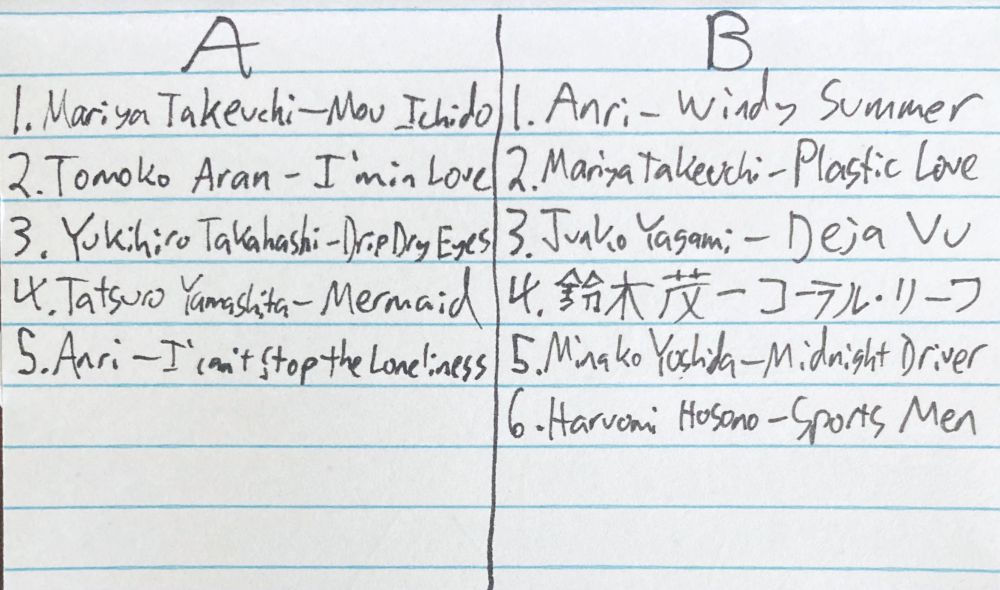 A
1. Mariya Takeuchi-Mou Ichido
2. Tomoko Aran - I'm in Love
3. Yukihiro Takahashi-Drip Dry Eyes
4. Tatsuro Yamashita- Mermaid
5. Anri - I can't Stop the Loneliness
B
1. Anri - Windy Summer
2. Mariya Takeuchi-Plastic Love
3. Junko Yagami - Deja Vu
4. 鈴木茂ーコーラル・リーフ
5. Minako Yoshida-Midnight Driver
6. Haruomi Hosono-Sports Men